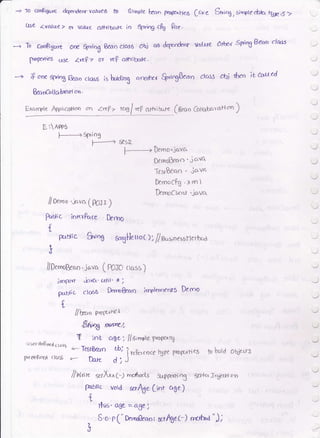 → To configure dependent values to Simple bean properties (like String, simple data types)
use <value> or value attribute in Spring cfg file.
→ To configure one Spring Bean class obj as dependent value other Spring Bean class
properties use <ref> or ref attribute.
→ if one spring Bean class is holding another SpringBean class obj then it called
BeanCollaboration.
Example Application on <ref> tag / ref attribute (Bean Collaboration)
E:\APPS
Spring
SE52
Demo.java
DemoBean.java
TestBean.java
DemoCfg.xml
DemoClient.java
//Demo.java (POJI)
Public interface Demo
{
public String sayHello(); //BusinessMethod
}
//DemoBean.java (POJO class)
import java.util.*;
public class DemoBean implements Demo
{
//bean properties
String name;
int age; //simple property
userdefined class ← TestBean tb;
predefined class ← Date d;
reference type properties to hold objects
//Write setXxx(-) methods supporting setter Injection
public void setAge (int age)
{
this.age = age;
S.o.p("DemoBean: setAge(-) method");
}